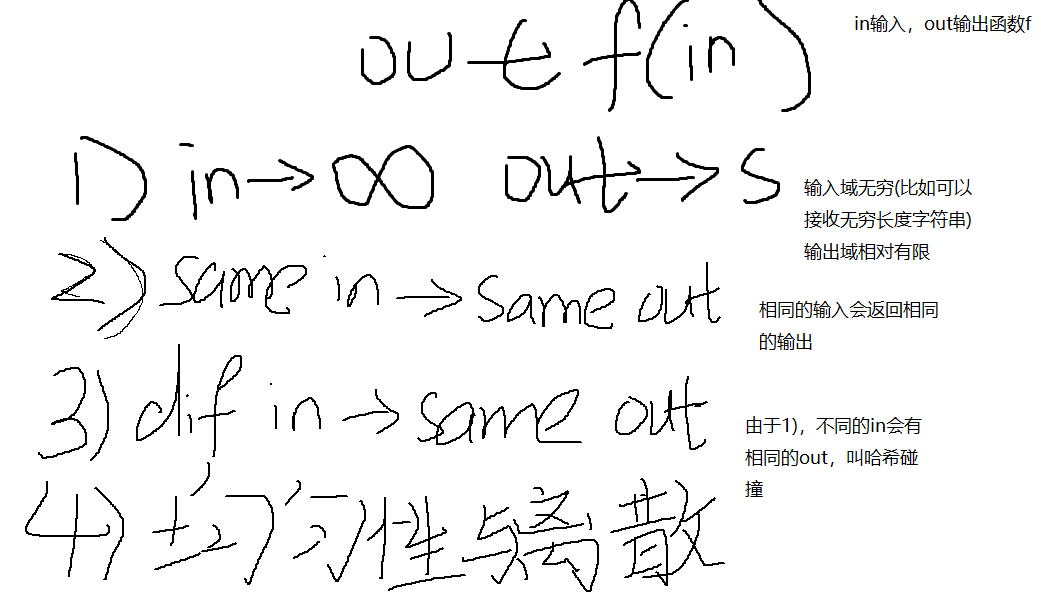 out f(in)
in输入，out输出函数f
1) in→∞ out→s
输入域无穷(比如可以
接收无穷长度字符串)
输出域相对有限
2) same in → same out
相同的输入会返回相同
的输出
3) dif in → same out
由于1)，不同的in会有
相同的out，叫哈希碰
撞
4) 均匀性与离散